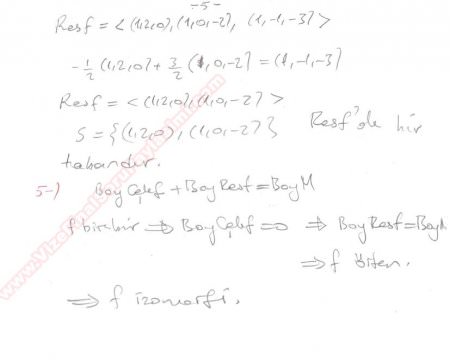 -5-
Resf = <(1,2,0), (1,0,-2), (1,-1,-3)>
-1/2 (1,2,0) + 3/2 (1,0,-2) = (1,-1,-3)
Resf = <(1,2,0), (1,0,-2)>
S = {(1,2,0), (1,0,-2)} Resf'de bir
tabandır.
5-) Boy Çekf + Boy Resf = Boy M
f birebir ⇒ Boy Çekf = 0 ⇒ Boy Resf = Boy M
⇒ f örten.
⇒ f izomorfi.